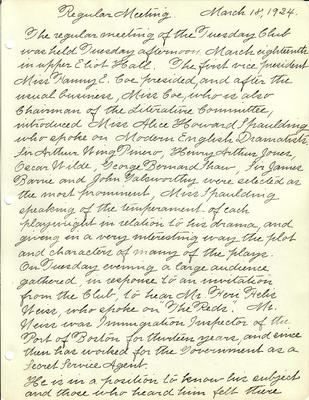 Regular Meeting. March 18, 1924.
The regular meeting of the Tuesday Club
was held Tuesday afternoon March eighteenth
in upper Eliot Hall. The first vice president
Miss Fanny E. Coe presided, and after the
usual business, Miss Coe, who is also
Chairman of the Literature Committee,
introduced Miss Alice Howard Spaulding
who spoke on Modern English Dramatists.
Sir Arthur Wing Pinero, Henry Arthur Jones,
Oscar Wilde, George Bernard Shaw, Sir James
Barrie and John Galsworthy were selected as
the most prominent. Miss Spaulding
speaking of the temperament of each
playwright in relation to his drama, and
giving in a very interesting way the plot
and characters of many of the plays.
On Tuesday evening a large audience
gathered, in response to an invitation
from the Club, to hear Mr.
Weiss, who spoke on "The Reds". Mr.
Weiss was Immigration Inspector of the
Port of Boston for thirteen years, and since
then has worked for the Government as a
Secret Service Agent.
He is in a position to know his subject
and those who heard him felt there